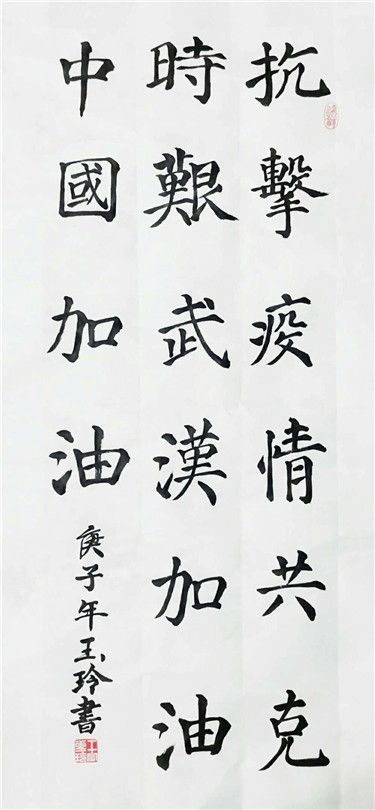 抗擊疫情共克
時艱武漢加油
中國加油
庚子年玉玲書